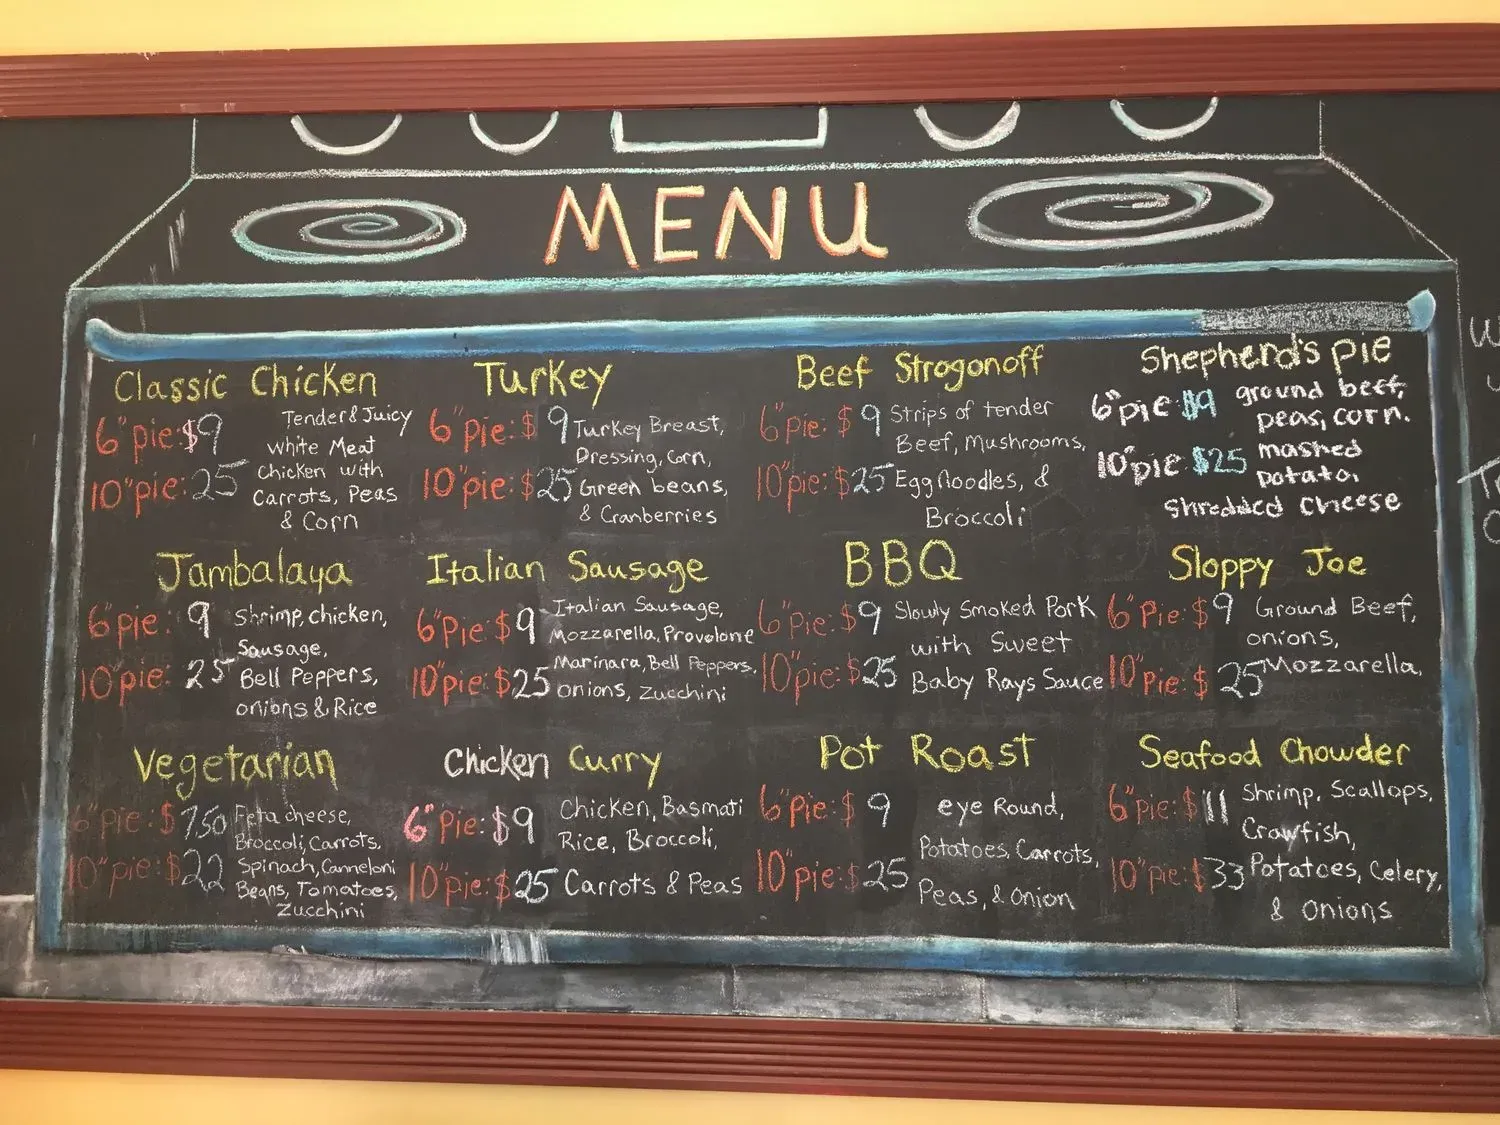 MENU
Classic Chicken
6" pie: $9
10" pie: 25
Tender & Juicy
white Meat
Chicken with
Carrots, Peas
& Corn
Turkey
6" pie: $9
10" pie: $25
Turkey Breast,
Dressing, Corn,
Green beans,
& Cranberries
Beef Strogonoff
6" pie: $9
10" pie: $25
Strips of tender
Beef, Mushrooms,
Egg Noodles, &
Broccoli
Shepherd's pie
6" pie $9
10" pie $25
ground beef,
peas, corn.
mashed
potato,
Shredded cheese
Jambalaya
6" pie: 9
10" pie: 25
Shrimp, chicken,
Sausage,
Bell Peppers,
onions & Rice
Italian Sausage
6" pie: $9
10" pie: $25
Italian Sausage,
Mozzarella, Provolone
Marinara, Bell Peppers,
onions, zucchini
BBQ
6" pie: $9
10" pie: $25
Slowly Smoked Pork
with Sweet
Baby Rays Sauce
Sloppy Joe
6" Pie: $9
10" Pie: $25
Ground Beef,
onions,
Mozzarella,
Vegetarian
6" pie: $7.50
10" pie: $22
Feta cheese,
Broccoli, Carrots,
Spinach, Canneloni
Beans, Tomatoes,
Zucchini
Chicken Curry
6" Pie: $9
10" pie: $25
Chicken, Basmati
Rice, Broccoli,
Carrots & Peas
Pot Roast
6" pie: $9
10" pie: $25
eye Round,
Potatoes, Carrots,
Peas, & Onion
Seafood Chowder
6" pie: $11
10" pie: $33
Shrimp, Scallops,
Crawfish,
Potatoes, Celery,
& Onions